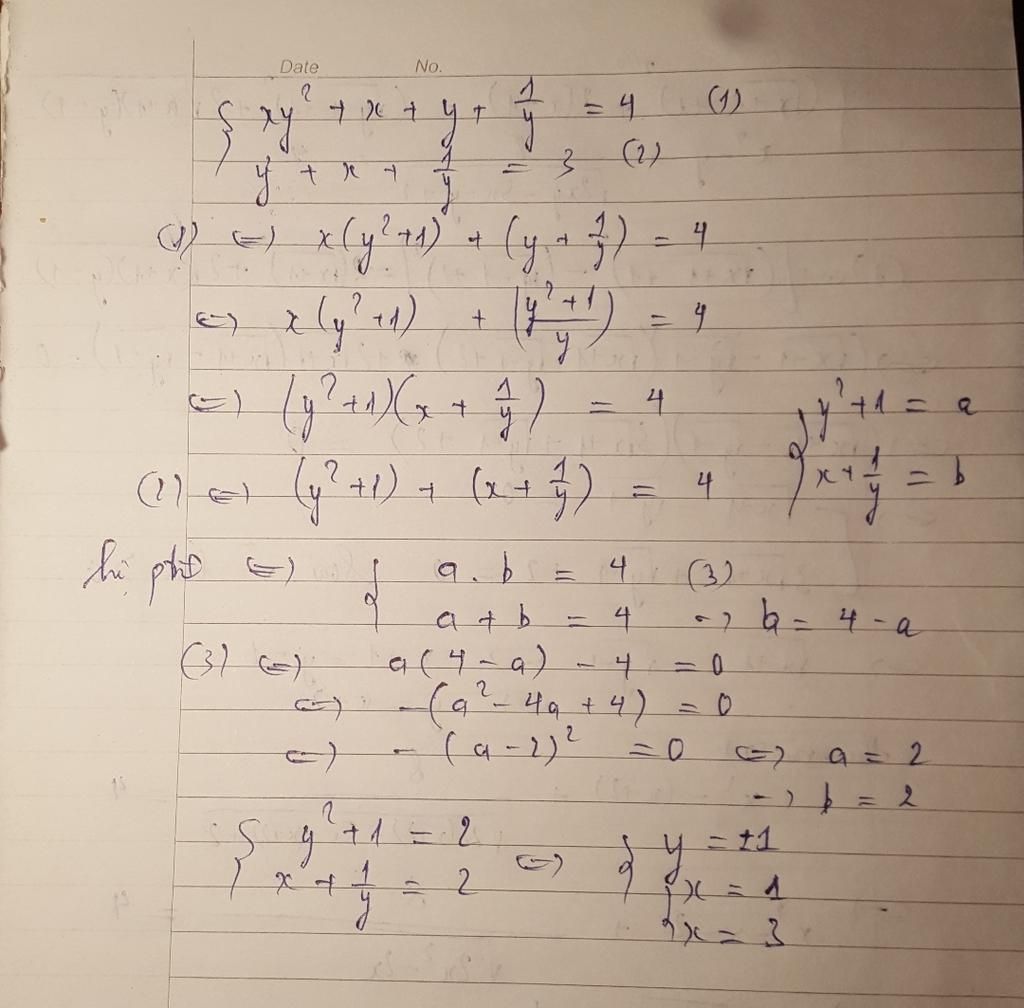 Date No.
{ xy² + x + y + 1/y = 4 (1)
y + x + 1/y = 3 (2)
(1) <=> x(y²+1) + (y + 1/y) = 4
<=> x(y²+1) + (y²+1/y) = 4
<=> (y²+1)(x + 1/y) = 4 { y²+1 = a
(2) <=> (y²+1) + (x + 1/y) = 4 x + 1/y = b
<=> { a . b = 4 (3)
a + b = 4 -> b = 4 - a
(3) <=> a(4 - a) - 4 = 0
<=> -(a² - 4a + 4) = 0
<=> -(a - 2)² = 0 <=> a = 2
-> b = 2
{ y² + 1 = 2 <=> { y = ±1
x + 1/y = 2 { x = 1
x = 3